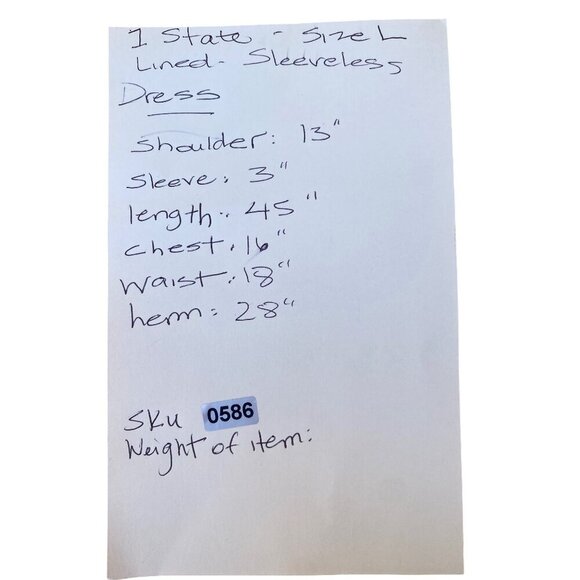 1 State - Size L
Lined - Sleeveless
Dress
Shoulder: 13"
Sleeve: 3"
length: 45"
Chest: 16"
Waist: 18"
hem: 28"
SKU 0586
Weight of item: